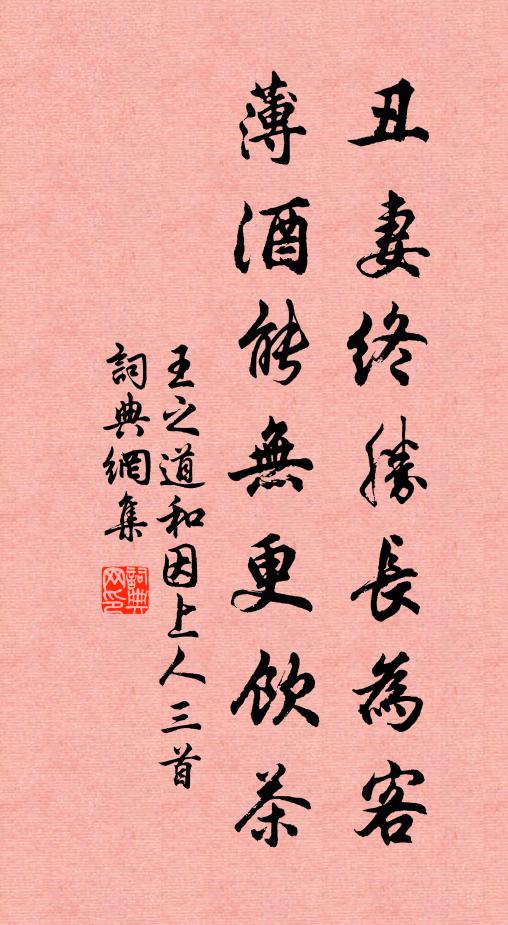 丑妻終勝長為客
薄酒能無更飲茶
王之道和因上人三首
詞典網集
詞典
网印